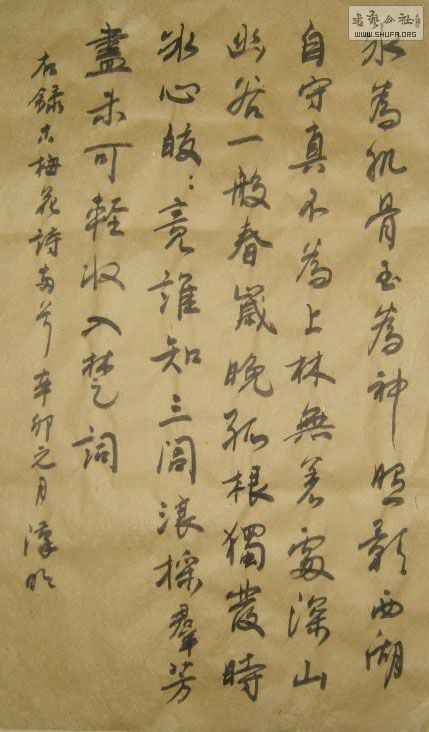 氷為肌骨玉為神照影西湖
自守真不為上林無着處深山
幽谷一般春歲晚孤根獨發時
冰心皎:竟誰知三閭浪採羣芳
盡未可輕收入楚詞
右錄古梅花詩兩首辛卯元月漢明
書藝公社
WWW.SHUFA.ORG